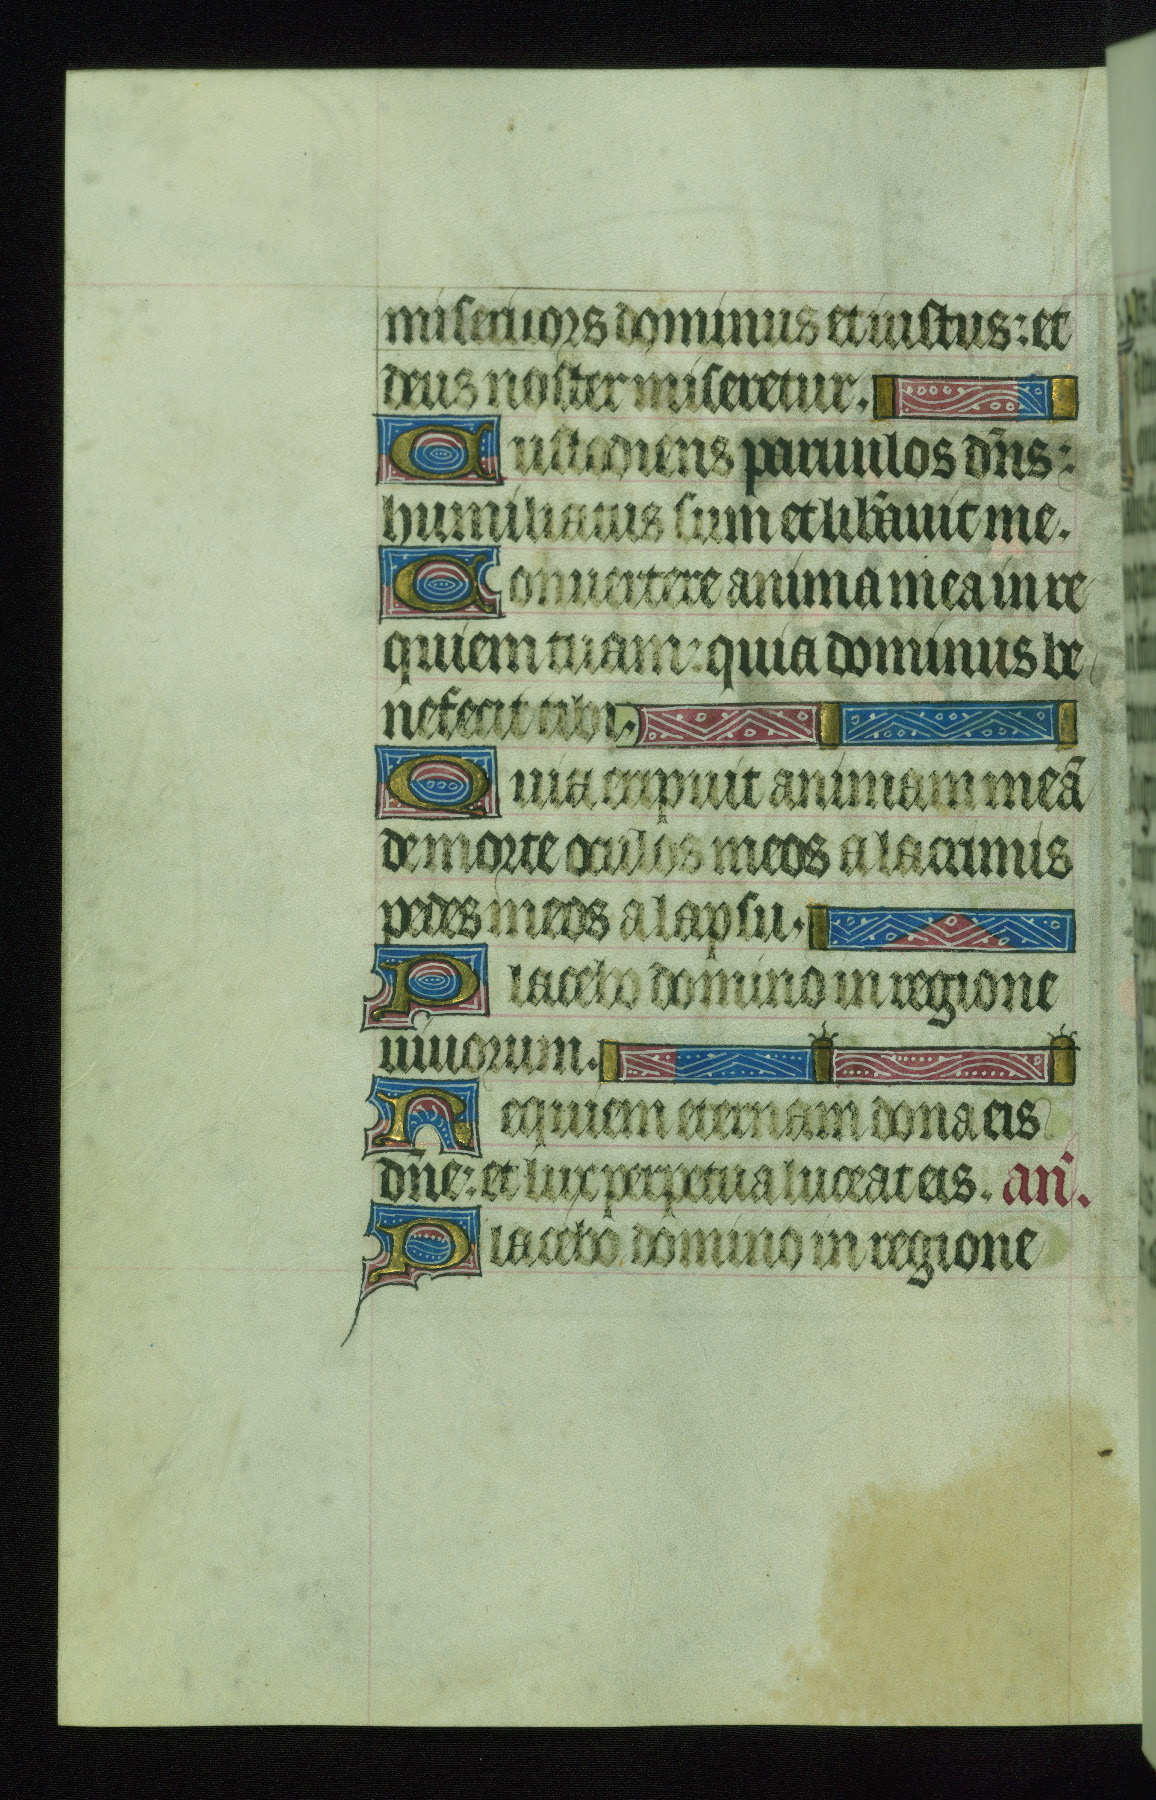 misericors dominus et iustus: et
deus noster miseretur.
Custodiens paruulos dn̄s:
humiliatus sum et lib̄auit me.
Conuertere anima mea in re
quiem tuam: quia dominus be
nefecit tibi.
Quia eripuit animam meā
de morte oculos meos a lacrimis
pedes meos a lapsu.
Placebo domino in regione
uiuorum.
Requiem eternam dona eis
dn̄e: et lux perpetua luceat eis. an̄.
Placebo domino in regione